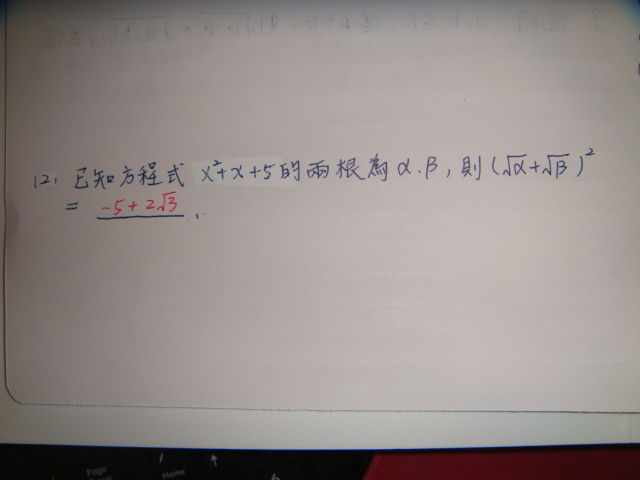 12. 已知方程式 x²+x+5的兩根為 α.β, 則 (√α+√β)²
= -5+2√3.
Page
Home